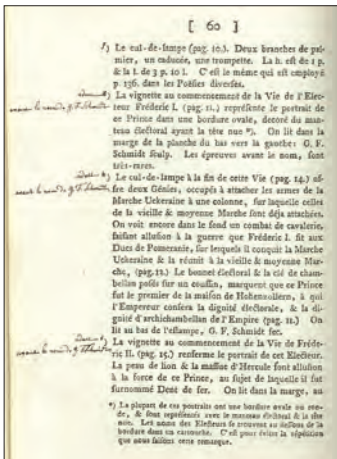 [ 60 ]
5) Le cul-de-lampe (pag. 10.). Deux branches de pal-
mier, un caducée, une trompette. La h. est de 1 p.
& la l. de 3 p. 10 l. C'est le même qui est employé
p. 136. dans les Poésies diverses.
La vignette au commencement de la Vie de l'Elec-
teur Fréderic I. (pag. 11.) représente le portrait de
ce Prince dans une bordure ovale, decoré du man-
teau électoral ayant la tête nue *). On lit dans la
marge de la planche du bas vers la gauche: G. F.
Schmidt sculp. Les épreuves avant le nom, sont
très-rares.
Le cul-de-lampe à la fin de cette Vie (pag. 14.) of-
fre deux Génies, occupés à attacher les armes de la
Marche Ukeraine à une colonne, sur laquelle celles
de la vieille & moyenne Marche sont déja attachées.
On voit encore dans le fond un combat de cavalerie,
faisant allusion à la guerre que Fréderic I. fit aux
Ducs de Pomeranie, sur lesquels il conquit la Marche
Uckeraine & la réunit à la vieille & moyenne Mar-
che, (pag. 12.) Le bonnet électoral & la clé de cham-
bellan posés sur un coussin, marquent que ce Prince
fut le premier de la maison de Hohenzollern, à qui
l'Empereur conféra la dignité électorale, & la di-
gnité d'archichambellan de l'Empire (pag. 11.) On
lit au bas de l'estampe, G. F. Schmidt fec.
La vignette au commencement de la Vie de Fréde-
ric II. (pag. 15.) renferme le portrait de cet Electeur.
La peau de lion & la massue d'Hercule font allusion
à la force de ce Prince, au sujet de laquelle il fut
surnommé Dent de fer. On lit dans la marge, au
*) La plupart de ces portraits ont une bordure ovale ou ron-
de, & sont représentés avec le manteau électoral & la tête
nue. Les noms des Electeurs se trouvent au dessous de la
bordure dans un cartouche. C'est pour éviter la répétition
que nous faisons cette remarque.